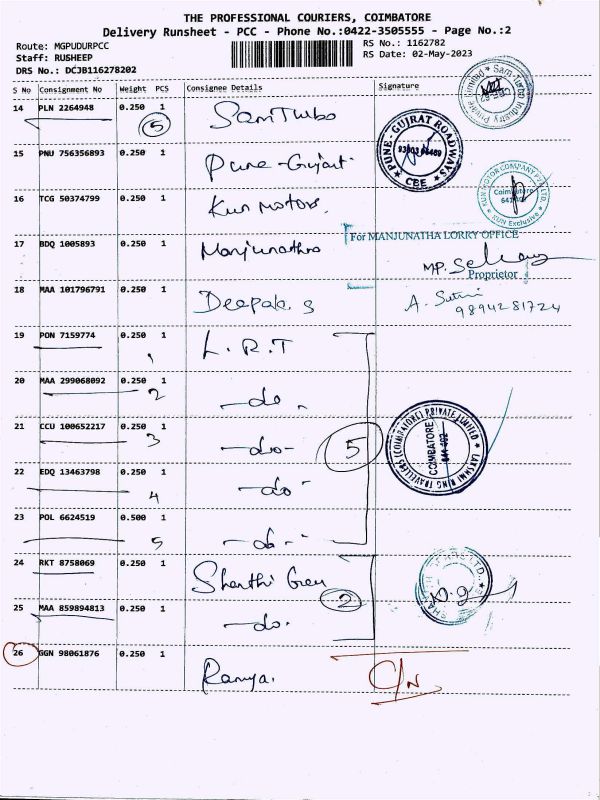 THE PROFESSIONAL COURIERS, COIMBATORE
Delivery Runsheet - PCC - Phone No.:0422-3505555 - Page No.:2
Route: MGPUDURPCC
RS No.: 1162782
Staff: RUSHEEP
RS Date: 02-May-2023
DRS No.: DCJB116278202
S No Consignment No Weight PCS Consignee Details Signature
14 PLN 2264948 0.250 1 Sam Turbo
5
15 PNU 756356893 0.250 1 Pune-Gujrat
PUNE-GUJRAT ROADWAYS
CBE
16 TCG 50374799 0.250 1 Kun Motors.
KUN MOTOR COMPANY PVT LTD
Coimbatore
KUN Exclusive
17 BDQ 1005893 0.250 1 Manjunatha
For MANJUNATHA LORRY OFFICE
Proprietor
18 MAA 101796791 0.250 1 Deepak. S
9894281724
19 PON 7159774 0.250 1 L.R.T
1
20 MAA 299068092 0.250 1 -do.
2
21 CCU 100652217 0.250 1 -do-
3
5
LAKSHMI RING TRAVELLERS (COIMBATORE) PRIVATE LIMITED
COIMBATORE
22 EDQ 13463798 0.250 1 -do-
4
23 POL 6624519 0.500 1 -do-
5
24 RKT 8758069 0.250 1 Shanthi Gear
2
25 MAA 859894813 0.250 1 -do.
26 GGN 98061876 0.250 1 Ramya.
C/N